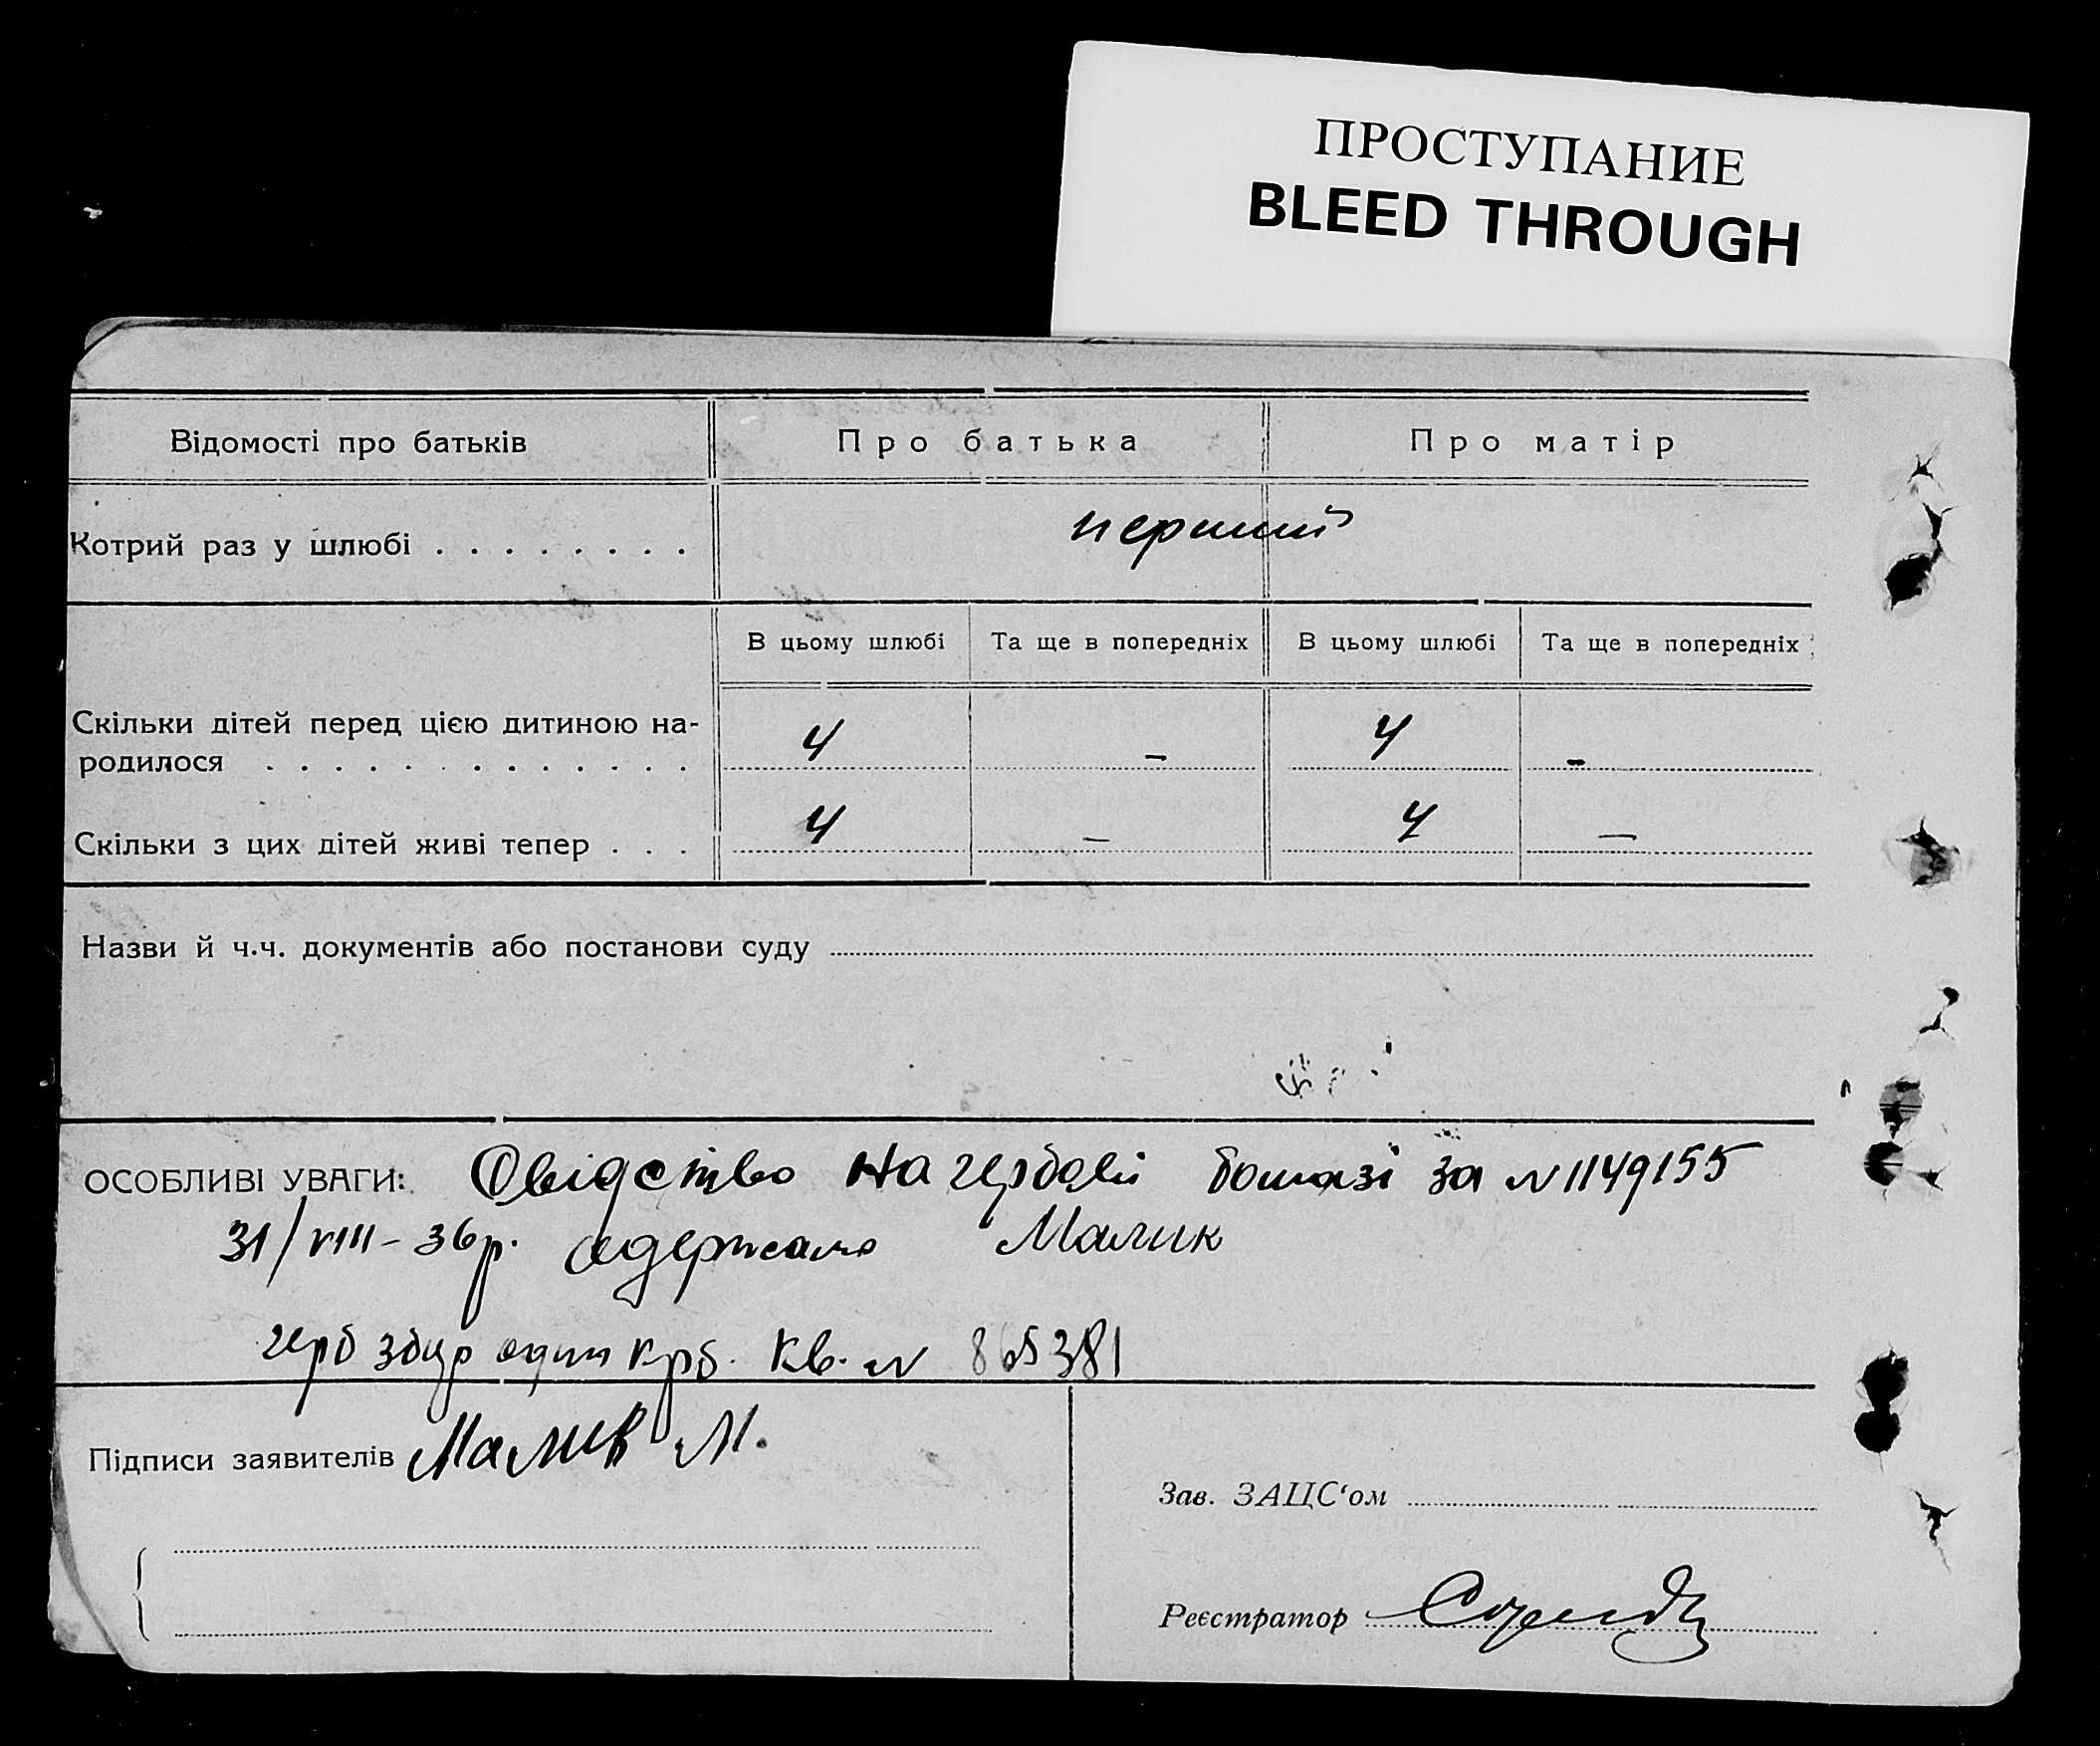 ПРОСТУПАНИЕ
BLEED THROUGH
Відомості про батьків Про батька Про матір
Котрий раз у шлюбі . . . . . . . . перший
В цьому шлюбі Та ще в попередніх В цьому шлюбі Та ще в попередніх
Скільки дітей перед цією дитиною на-
родилося . . . . . . . . . . . . . 4 - 4 -
Скільки з цих дітей живі тепер . . . 4 - 4 -
Назви й ч.ч. документів або постанови суду
ОСОБЛИВІ УВАГИ: Свідство на гербовій бомазі за N 1149155
31/VIII - 36 р. одержало Малик
герб збир один крб. Кв. N 865381
Підписи заявителів Малик М.
Зав. ЗАЦС‘ом
Реєстратор